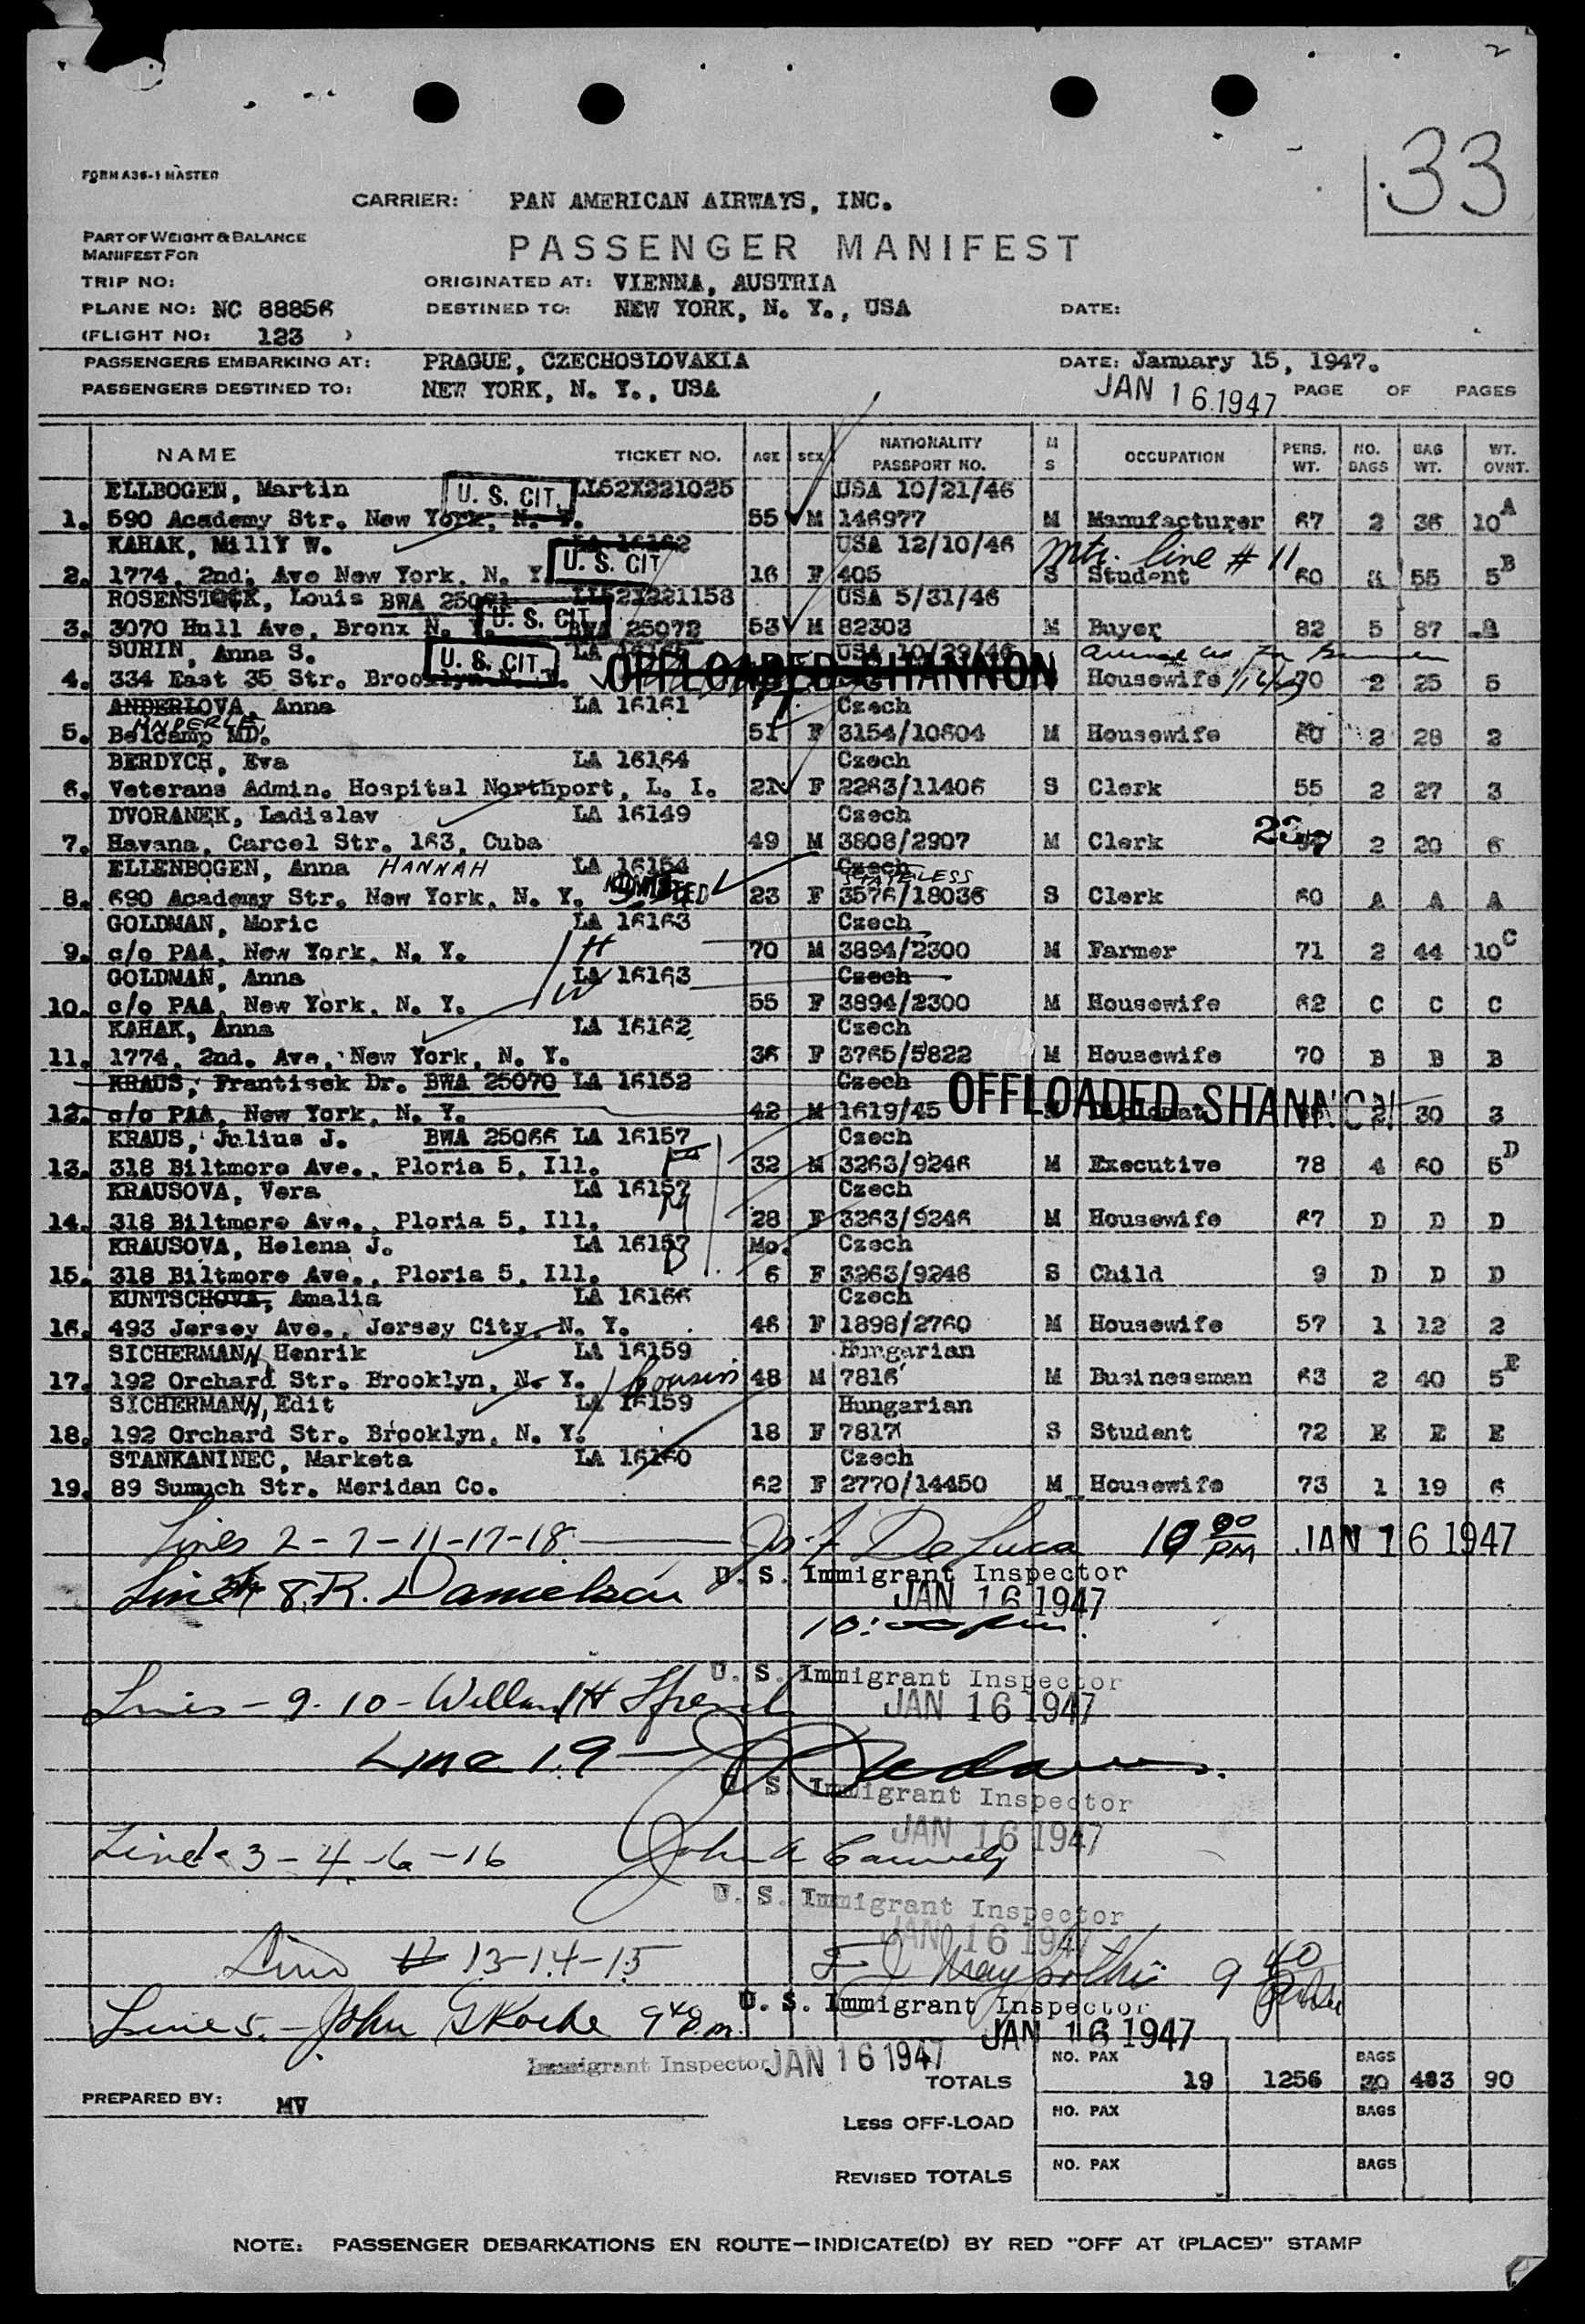 2
33
FORM A36-1 MASTER
CARRIER: PAN AMERICAN AIRWAYS, INC.
PART OF WEIGHT & BALANCE
MANIFEST FOR
PASSENGER MANIFEST
TRIP NO: ORIGINATED AT: VIENNA, AUSTRIA
PLANE NO: NC 88856 DESTINED TO: NEW YORK, N. Y., USA DATE:
(FLIGHT NO: 123 )
PASSENGERS EMBARKING AT: PRAGUE, CZECHOSLOVAKIA DATE: January 15, 1947.
PASSENGERS DESTINED TO: NEW YORK, N. Y., USA JAN 16 1947 PAGE OF PAGES
NAME TICKET NO. AGE SEX NATIONALITY PASSPORT NO. M S OCCUPATION PERS. WT. NO. BAGS BAG WT. WT. OVNT.
ELLBOGEN, Martin U. S. CIT. LI52X221025 USA 10/21/46
1. 590 Academy Str. New York, N. Y. 55 M 146977 M Manufacturer 67 2 36 10 A
KAHAK, Milly W. LA 16162 USA 12/10/46 line # 11
2. 1774, 2nd. Ave New York, N. Y. U. S. CIT 16 F 405 S Student 60 55 5 B
ROSENSTOCK, Louis BWA LI52X221158 USA 5/31/46
3. 3070 Hull Ave, Bronx N. Y. U. S. CIT. BWA 25072 53 M 82303 M Buyer 82 5 87
SURIN, Anna S. U. S. CIT. LA USA 10/29/46
4. 334 East 35 Str. Brooklyn N. Y. OFFLOADED SHANNON Housewife 70 2 25 5
ANDERLOVA, Anna LA 16161 Czech
ANDERLE
5. Belcamp MD. 51 F 3154/10604 M Housewife 60 2 28 2
BERDYCH, Eva LA 16164 Czech
6. Veterans Admin. Hospital Northport, L. I. 21 F 2263/11406 S Clerk 55 2 27 3
DVORANEK, Ladislav LA 16149 Czech
7. Havana, Carcel Str. 163, Cuba 49 M 3808/2907 M Clerk 2 20 6
ELLENBOGEN, Anna HANNAH LA 16154 Czech STATELESS
8. 690 Academy Str. New York, N. Y. ADMITTED 23 F 3576/18036 S Clerk 60 A A A
GOLDMAN, Moric LA 16163 Czech
9. c/o PAA, New York, N. Y. H 70 M 3894/2300 M Farmer 71 2 44 10 C
GOLDMAN, Anna LA 16163 Czech
10. c/o PAA, New York, N. Y. W 55 F 3894/2300 M Housewife 62 C C C
KAHAK, Anna LA 16162 Czech
11. 1774, 2nd. Ave, New York, N. Y. 36 F 3765/5822 M Housewife 70 B B B
KRAUS, Frantisek Dr. BWA 25070 LA 16152 Czech
12. c/o PAA, New York, N. Y. 42 M 1619/45 OFFLOADED SHANNON 2 30 3
KRAUS, Julius J. BWA 25066 LA 16157 Czech
13. 318 Biltmore Ave., Ploria 5, Ill. 32 M 3263/9246 M Executive 78 4 60 5 D
KRAUSOVA, Vera LA 16157 Czech
14. 318 Biltmore Ave., Ploria 5, Ill. 28 F 3263/9246 M Housewife 67 D D D
KRAUSOVA, Helena J. LA 16157 Mo. Czech
15. 318 Biltmore Ave., Ploria 5, Ill. 6 F 3263/9246 S Child 9 D D D
KUNTSCHOVA, Amalia LA 16166 Czech
16. 493 Jersey Ave., Jersey City, N. Y. 46 F 1898/2760 M Housewife 57 1 12 2
SICHERMANN, Henrik LA 16159 Hungarian
17. 192 Orchard Str. Brooklyn, N. Y. Cousin 48 M 7816 M Businessman 63 2 40 5 E
SICHERMANN, Edit LA 16159 Hungarian
18. 192 Orchard Str. Brooklyn, N. Y. 18 F 7817 S Student 72 E E E
STANKANINEC, Marketa LA 16160 Czech
19. 89 Sumich Str. Meridan Co. 62 F 2770/14450 M Housewife 73 1 19 6
Lines 2-7-11-17-18 Jos. F. De Luca 10 00 PM JAN 16 1947
U. S. Immigrant Inspector
Line 8. R. Danielson JAN 16 1947
10:00 pm.
U. S. Immigrant Inspector
Lines - 9. 10 - JAN 16 1947
Line 19 -
U. S. Immigrant Inspector
JAN 16 1947
Lines 3-4-6-16 John A
U. S. Immigrant Inspector
JAN 16 1947
Line # 13-14-15 9 40
U. S. Immigrant Inspector
Line 5. - John 9 40 p.m. JAN 16 1947
Immigrant Inspector JAN 16 1947
TOTALS NO. PAX 19 1256 BAGS 30 483 90
PREPARED BY: MV
LESS OFF-LOAD NO. PAX BAGS
REVISED TOTALS NO. PAX BAGS
NOTE: PASSENGER DEBARKATIONS EN ROUTE—INDICATE(D) BY RED "OFF AT (PLACE)" STAMP